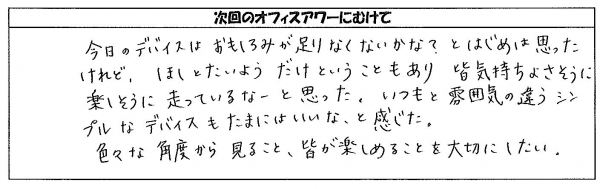 次回のオフィスアワーにむけて
今日のデバイスは おもしろみが足りなくないかな? とはじめは思った
けれど、ほしとたいよう だけということもあり 皆気持ちよさそうに
楽しそうに 走っているなーと思った。いつもと 雰囲気の違う シン
プルな デバイスも たまには いいな、と 感じた。
色々な 角度から 見ること、皆が楽しめることを大切にしたい。